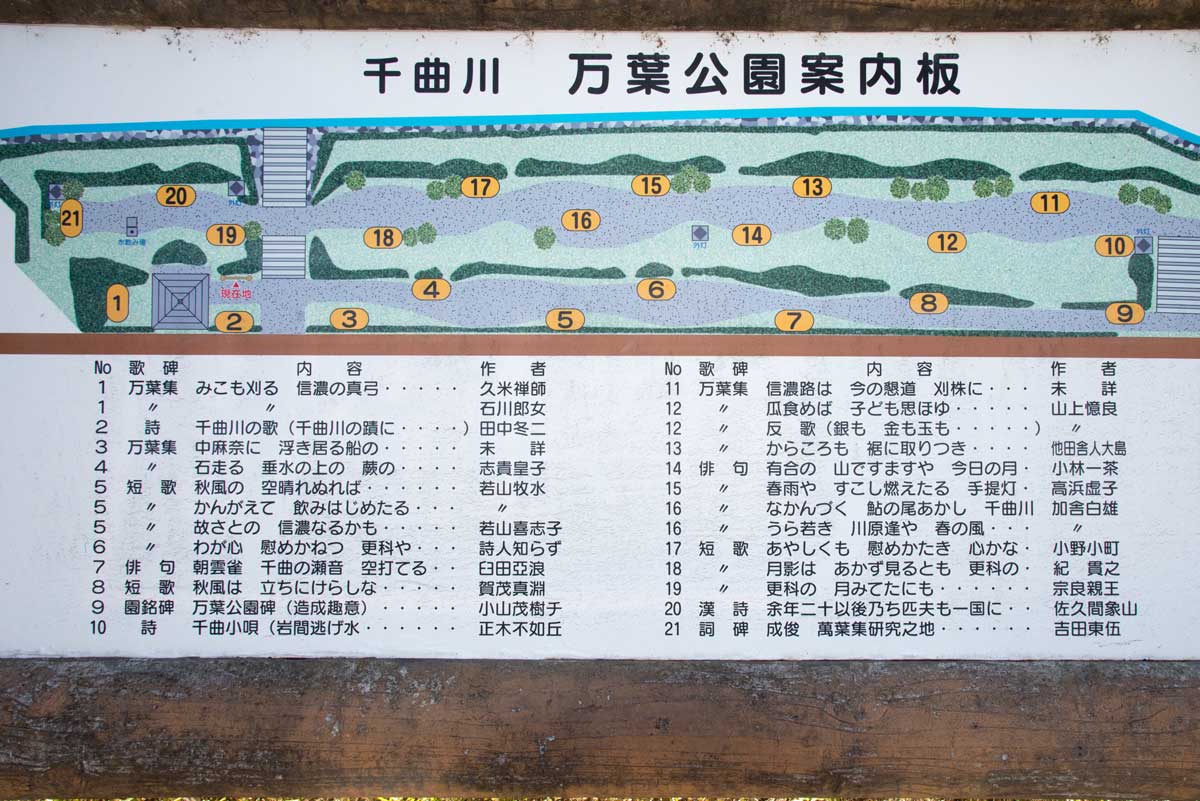 千曲川　万葉公園案内板
20
17
15
13
11
21
外灯
外灯
水飲み場
19
18
16
外灯
14
12
外灯
10
現在地
1
2
3
4
5
6
7
8
9
No 歌碑 内容 作者
1 万葉集 みこも刈る 信濃の真弓・・・・・ 久米禅師
1 〃 〃 石川郎女
2 詩 千曲川の歌(千曲川の蹟に・・・・) 田中冬二
3 万葉集 中麻奈に 浮き居る船の・・・・ 未詳
4 〃 石走る 垂水の上の 蕨の・・・・ 志貴皇子
5 短歌 秋風の 空晴れぬれば・・・・・・ 若山牧水
5 〃 かんがえて 飲みはじめたる・・・ 〃
5 〃 故さとの 信濃なるかも・・・・・ 若山喜志子
6 〃 わが心 慰めかねつ 更科や・・・ 詩人知らず
7 俳句 朝雲雀 千曲の瀬音 空打てる・・ 臼田亞浪
8 短歌 秋風は 立ちにけらしな・・・・・ 賀茂真淵
9 園銘碑 万葉公園碑(造成趣意)・・・・・ 小山茂樹チ
10 詩 千曲小唄(岩間逃げ水・・・・・・ 正木不如丘
No 歌碑 内容 作者
11 万葉集 信濃路は 今の懇道 刈株に・・・ 未詳
12 〃 瓜食めば 子ども思ほゆ・・・・・ 山上憶良
12 〃 反歌(銀も 金も玉も・・・・・) 〃
13 〃 からころも 裾に取りつき・・・・ 他田舎人大島
14 俳句 有合の 山ですますや 今日の月・ 小林一茶
15 〃 春雨や すこし燃えたる 手提灯・ 高浜虚子
16 〃 なかんづく 鮎の尾あかし 千曲川 加舎白雄
16 〃 うら若き 川原逢や 春の風・・・ 〃
17 短歌 あやしくも 慰めかたき 心かな・ 小野小町
18 〃 月影は あかず見るとも 更科の・ 紀貫之
19 〃 更科の 月みてたにも・・・・・・ 宗良親王
20 漢詩 余年二十以後乃ち匹夫も一国に・・ 佐久間象山
21 詞碑 成俊 萬葉集研究之地・・・・・・ 吉田東伍